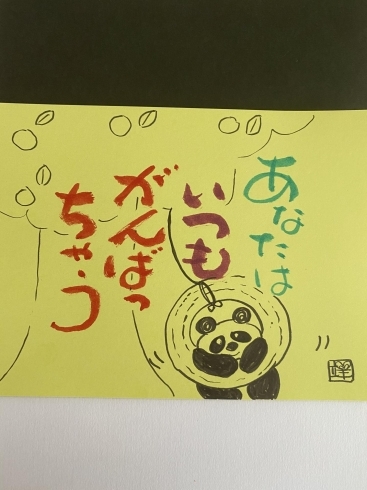 あなたは
いつも
がんばっ
ちゃう